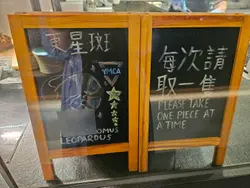 東星斑
YMCA
OMUS
LEOPARDUS
每次請
取一隻
PLEASE TAKE
ONE PIECE AT
A TIME